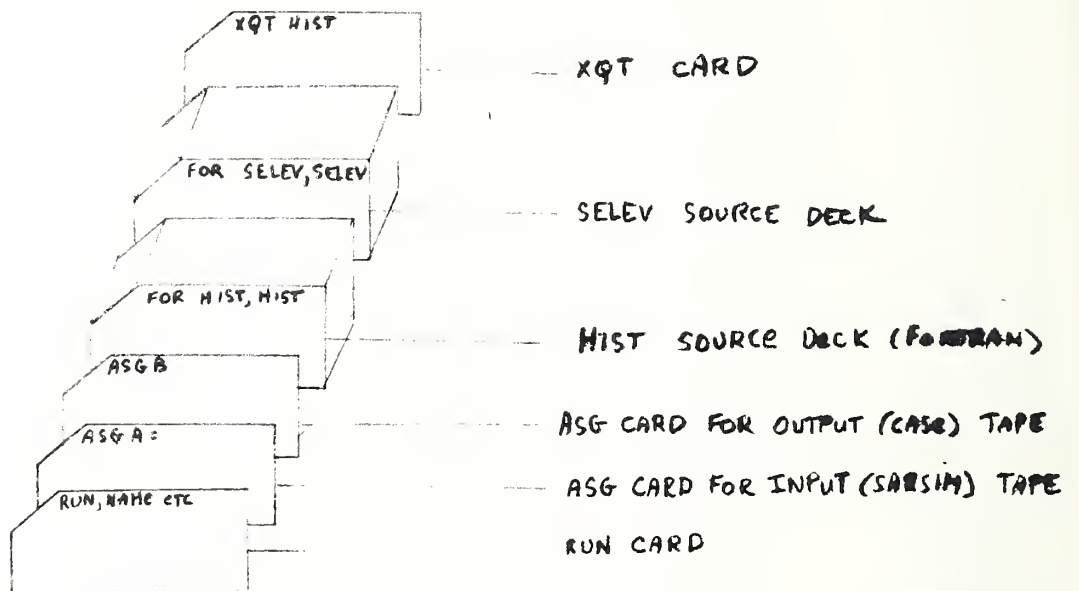 XQT HIST
XQT CARD
FOR SELEV, SELEV
SELEV SOURCE DECK
FOR HIST, HIST
HIST SOURCE DECK (FORTRAN)
ASG B
ASG CARD FOR OUTPUT (CASE) TAPE
ASG A:
ASG CARD FOR INPUT (SARSIM) TAPE
RUN, NAME etc
RUN CARD